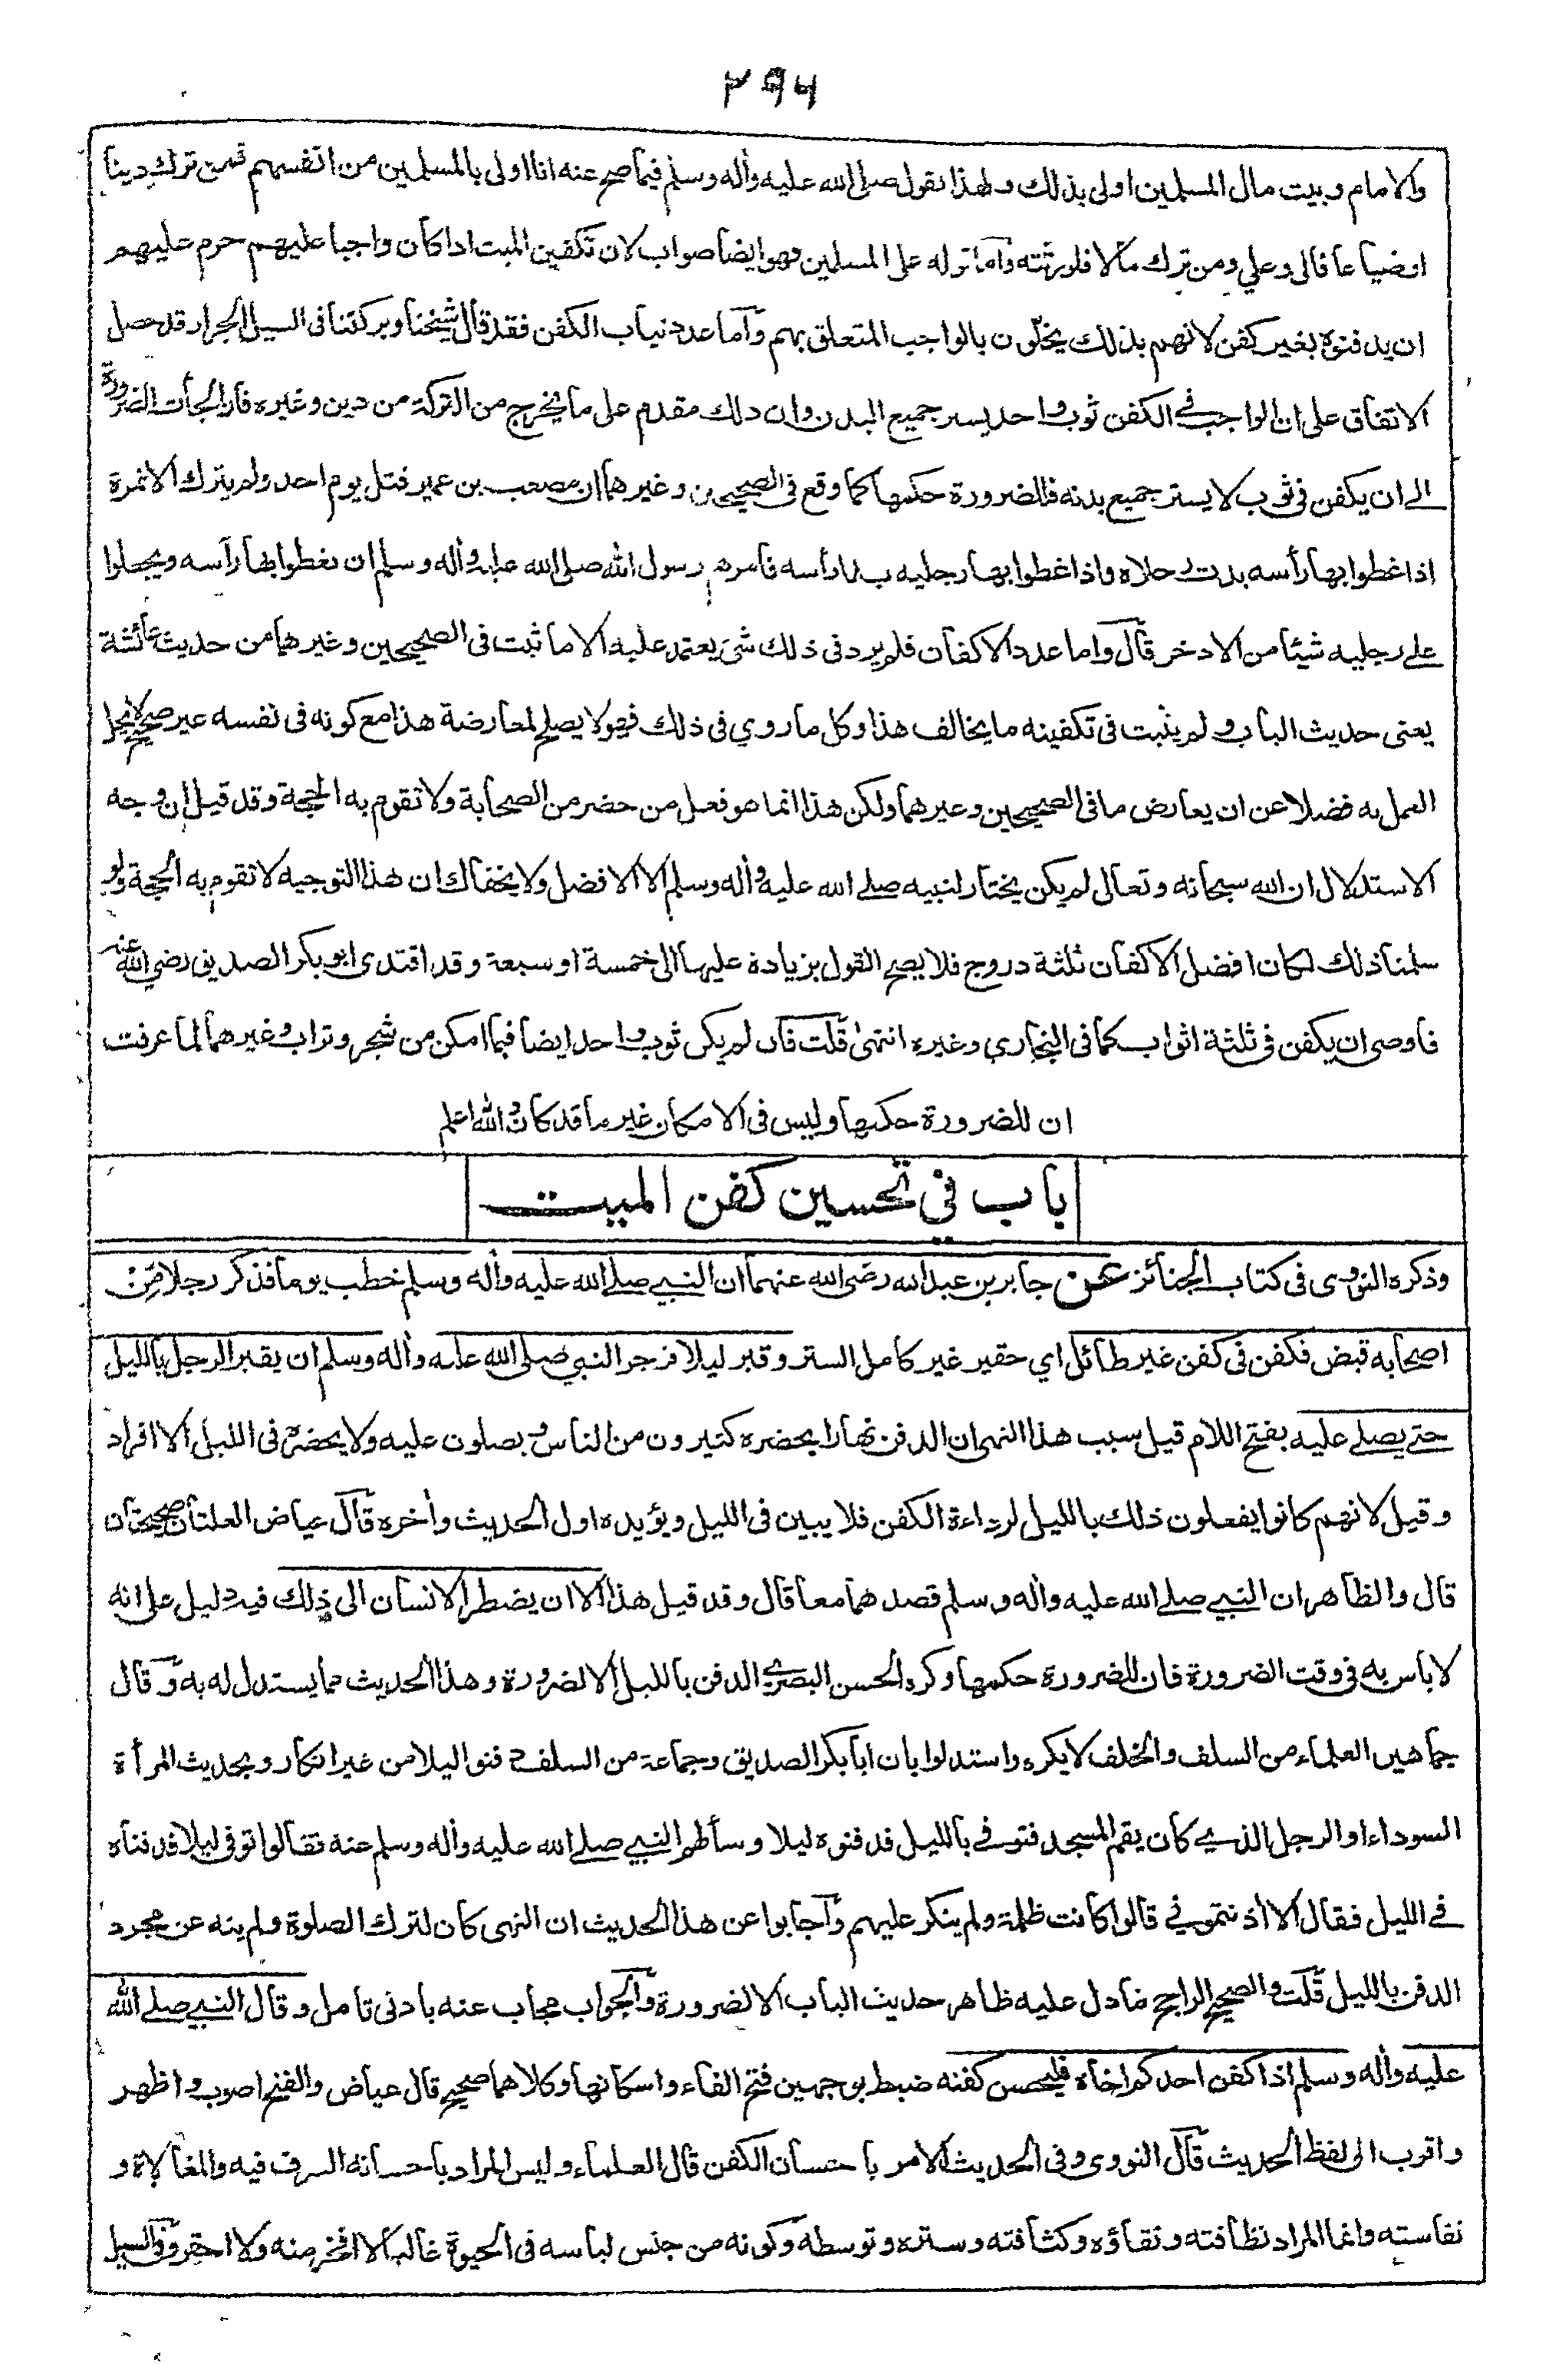 ۲۹۶
والامام وبيت مال المسلمين اولى بذلك ولهذا يقول صلى الله عليه وأله وسلم فيما صح عنه انا اولى بالمسلمين من انفسهم فمن ترك دينا
اوضياعا فالى وعلي ومن ترك مالا فلورثته وأما قوله على المسلمين فهو ايضا صواب لان تكفين الميت اذا كان واجبا عليهم حرم عليهم
ان يدفنوه بغير كفن لانهم بذلك يخلّون بالواجب المتعلق بهم وأما عدد ثياب الكفن فقد قال شيخنا وبركتنا فى السيل الجرار قد حصل
الاتفاق على ان الواجب في الكفن ثوب واحد يستر جميع البدن وان ذلك مقدم على ما يخرج من التركة من دين وغيره فان الجأت الضرورة
الى ان يكفن فى ثوب لا يستر جميع بدنه فللضرورة حكمها كما وقع فى الصحيحين وغيرهما ان مصعب بن عمير قتل يوم احد ولم يترك الا نمرة
اذا غطوا بها رأسه بدت رجلاه واذا غطوا بها رجليه بدا رأسه فامرهم رسول الله صلى الله عليه وأله وسلم ان يغطوا بها رأسه ويجعلوا
على رجليه شيئا من الاذخر قال واما عدد الاكفان فلم يرد فى ذلك شئ يعتمد عليه الا ما ثبت فى الصحيحين وغيرهما من حديث عائشة
يعنى حديث الباب ولم يثبت فى تكفينه ما يخالف هذا وكل ما روي فى ذلك فهو لا يصلح لمعارضة هذا مع كونه فى نفسه غير صحيح لا يحل
العمل به فضلا عن ان يعارض ما فى الصحيحين وغيرهما ولكن هذا انما هو فعل من حضر من الصحابة ولا تقوم به الحجة وقد قيل ان وجه
الاستدلال ان الله سبحانه وتعالى لم يكن يختار لنبيه صلى الله عليه وأله وسلم الا الافضل ولا يخفاك ان هذا التوجيه لا تقوم به الحجة ولو
سلمنا ذلك لكان افضل الاكفان ثلثة دروج فلا يصح القول بزيادة عليها الى خمسة او سبعة وقد اقتدى ابو بكر الصديق رضي الله عنه
فاوصى ان يكفن فى ثلثة اثواب كما فى البخاري وغيره انتهى قلت فان لم يكن ثوب واحد ايضا فبما امكن من شجر وتراب وغيرهما لما عرفت
ان للضرورة حكمها وليس فى الامكان غير ما قد كان والله اعلم
باب في تحسين كفن الميت
وذكره النووى فى كتاب الجنائز عن جابر بن عبد الله رضى الله عنهما ان النبي صلى الله عليه وأله وسلم خطب يوما فذكر رجلا مِنْ
اصحابه قبض فكفن فى كفن غير طائل اي حقير غير كامل الستر وقبر ليلا فزجر النبي صلى الله عليه وأله وسلم ان يقبر الرجل بالليل
حتى يصلى عليه بفتح اللام قيل سبب هذا النهى ان الدفن نهارا يحضره كثيرون من الناس و يصلون عليه ولا يحضره فى الليل الا افراد
وقيل لانهم كانوا يفعلون ذلك بالليل لرداءة الكفن فلا يبين فى الليل ويؤيده اول الحديث وأخره قال عياض العلتان صحيحتان
قال والظاهر ان النبي صلى الله عليه وأله وسلم قصدهما معا قال وقد قيل هذا الا ان يضطر الانسان الى ذلك فيه دليل على انه
لا باس به فى وقت الضرورة فان للضرورة حكمها وكره الحسن البصري الدفن بالليل الا لضرورة وهذا الحديث مما يستدل له به وقال
جماهير العلماء من السلف والخلف لا يكره واستدلوا بان ابا بكر الصديق وجماعة من السلف دفنوا ليلا من غير انكار وبحديث المرأة
السوداء او الرجل الذي كان يقم المسجد فتوفي بالليل فدفنوه ليلا وسألهم النبي صلى الله عليه وأله وسلم عنه فقالوا توفى ليلا فدفناه
في الليل فقال الا أذنتموني قالوا كانت ظلمة ولم ينكر عليهم وأجابوا عن هذا الحديث ان النهى كان لترك الصلوة ولم ينه عن مجرد
الدفن بالليل قلت والصحيح الراجح ما دل عليه ظاهر حديث الباب الا لضرورة والجواب مجاب عنه بادنى تامل وقال النبي صلى الله
عليه وأله وسلم اذا كفن احدكم اخاه فليحسن كفنه ضبط بوجهين فتح الفاء واسكانها وكلاهما صحيح قال عياض والفتح اصوب واظهر
واقرب الى لفظ الحديث قال النووى وفى الحديث الامر باحسان الكفن قال العلماء وليس المراد باحسانه السرف فيه والمغالاة و
نفاسته وانما المراد نظافته ونقاؤه وكثافته وستره وتوسطه وكونه من جنس لباسه فى الحيوة غالبا لا افخر منه ولا احقر وفى السيل